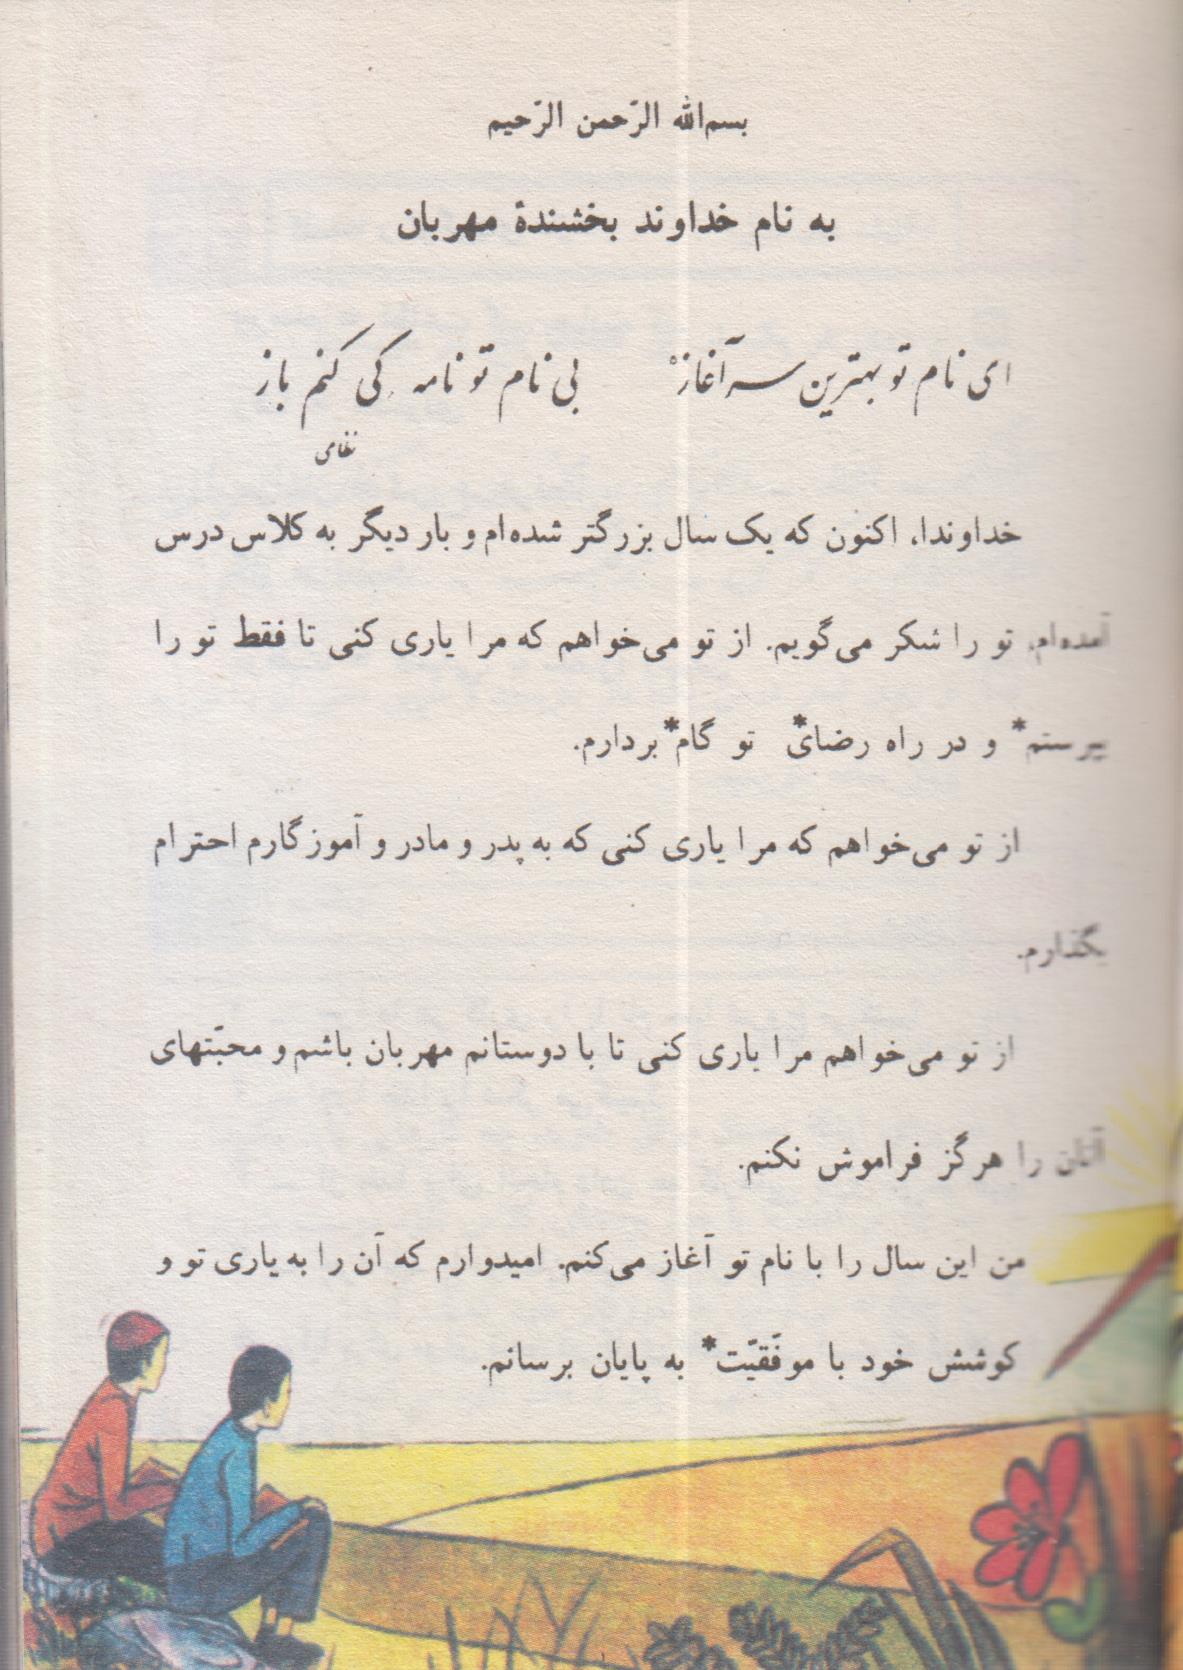 بسم‌الله الرّحمن الرّحیم
به نام خداوند بخشندهٔ مهربان
ای نام تو بهترین سرآغاز بی نام تو نامه کی کنم باز
نظامی
خداوندا، اکنون که یک سال بزرگتر شده‌ام و بار دیگر به کلاس درس
آمده‌ام، تو را شکر می‌گویم. از تو می‌خواهم که مرا یاری کنی تا فقط تو را
بپرستم* و در راه رضای* تو گام* بردارم.
از تو می‌خواهم که مرا یاری کنی که به پدر و مادر و آموزگارم احترام
بگذارم.
از تو می‌خواهم مرا یاری کنی تا با دوستانم مهربان باشم و محبّتهای
آنان را هرگز فراموش نکنم.
من این سال را با نام تو آغاز می‌کنم. امیدوارم که آن را به یاری تو و
کوشش خود با موفّقیّت* به پایان برسانم.